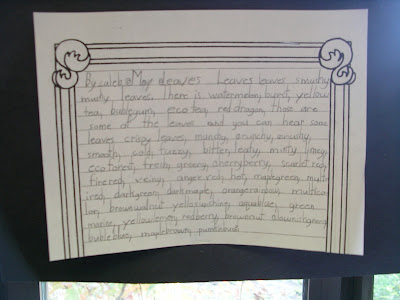 By caleb May Leaves Leaves leaves smushy
mushy leaves. Here is watermelon, burnt, yellow
tea, bubblegum, eco tea, red dragon, those are
some of the leaves and you can hear some
leaves crispy leaves, crunchy,
smooth, cold, fuzzy, bitter, leafy, minty limey,
eco forest, fresh, greeny, cherryberry, scarlet red,
fire red, veiny, anger red, hot, maple green, mult-
ired, dark green, dark maple, orange rainbow, multico
lor, brown walnut yellow aqua blue, green
marine, yellow redberry, brownnut
bubble blue, maple